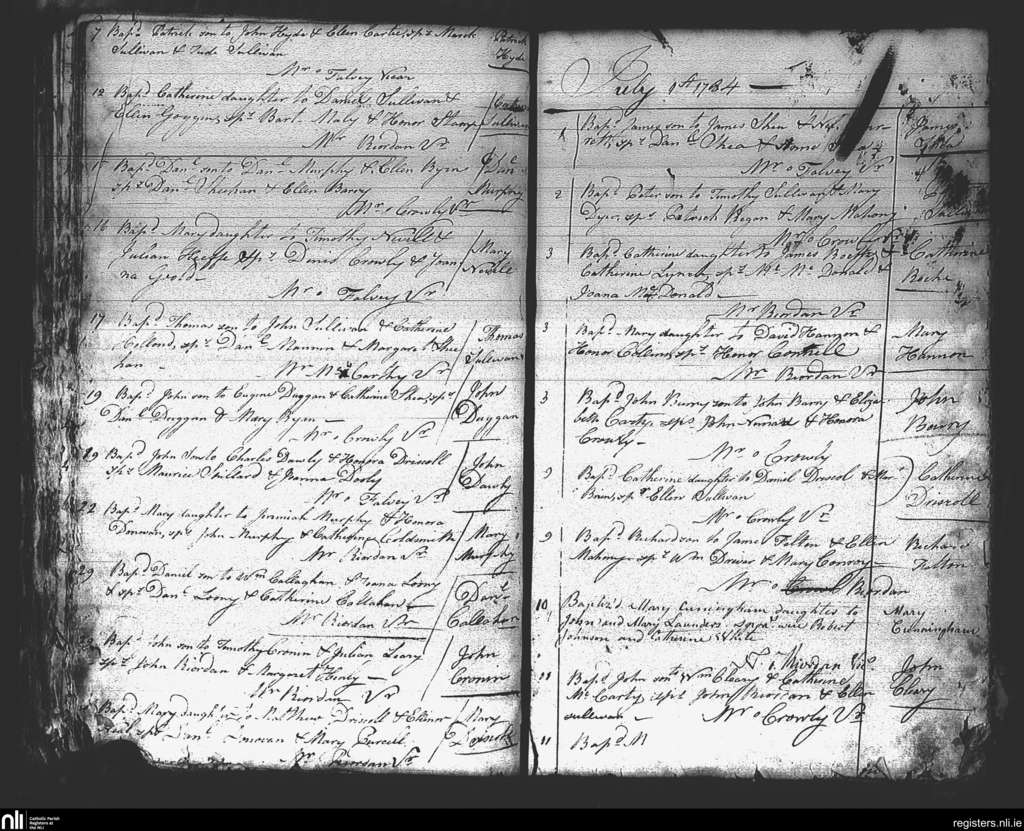 7 Bapd. Patrick son to John Hyde & Ellen Carte, sprs Marck
Sullivan & Jude Sullivan
Patrick
Hyde
Mr o Falvey Vicar
12 Bapd. Catherine daughter to Daniel Sullivan &
Ellen Goggens, sprs Bart. Maly & Honor
Sullivan
Mr Riordan Vr
Bapd. Danl. son to Danl. Murphy & Ellen Byrn
sprs Danl. Sheehan & Ellen Barry
Danl
Murphy
Mr o Crowly Vr
16 Bapd. Mary daughter to Timothy Nevill &
Julian Keeffe sprs Denis Crowly & Joan
na
Mary
Neville
Mr o Falvey Vr
17 Bapd. Thomas son to John Sullivan & Catherine
Hollond, sprs Danl. Mannin & Margaret Shee
han
Thomas
Sullivan
Mr McCarthy Vr
19 Bapd. John son to Eugene Duggan & Catherine Shea, sprs
Danl. Duggan & Mary Ryan
John
Duggan
Mr o Crowly Vr
29 Bapd. John Son to Charles Dawly & Honora Driscoll
sprs Maurice & Joanna
John
Dawly
Mr o Falvey Vr
22 Bapd. Mary daughter to Jeremiah Murphy & Honora
Donovan, sprs John Murphy & Goldsmith
Mary
Murphy
Mr Riordan Vr
29 Bapd. Daniel son to Wm Callaghan & Joana Loony
& sprs Danl. Loony & Catherine Callahan
Danl.
Callahan
Mr Riordan Vr
29 Bapd. John son to Timothy Cronin & Julian Leary
sprs John Riordan & Margaret Henly
John
Cronin
Mr Riordan Vr
Bapd. Mary daughter to Matthew Driscoll & Ellenor
sprs Danl. Donovan & Mary Purcell
Mary
Driscoll
Mr Riordan Vr
July 1st 1784
1 Bapd. James son to James Shea &
sprs Danl. Shea &
James
Shea
Mr o Falvey Vr
2 Bapd. Peter son to Timothy Sullivan & Mary
Dyer, sprs Patrick Regan & Mary Mahony
Mr o Crowly Vr
3 Bapd. Catherine daughter to James Roche &
Catherine Lynch, sprs Mc Donald &
Joana McDonald
Catherine
Roche
Mr Riordan Vr
3 Bapd. Mary daughter to David Hannon &
Honor Collins, sprs Honor Connell
Mary
Hannon
Mr Riordan Vr
3 Bapd. John Burry son to John Barry & Eliza
beth Carty sprs John & Honora
Crowly
John
Bowry
Mr o Crowly
9 Bapd. Catherine daughter to Daniel Driscol & Mar
sprs Ellen Sullivan
Catherine
Driscoll
Mr o Crowly Vr
9 Bapd. Richard son to James Felton & Ellen
Mahony sprs Wm & Mary Conway
Richard
Felton
Mr o Riordan
10 Baptiz'd Mary Cuningham daughter to
John and Mary Launders sprs were Robert
Johnson and Catherine White
Mary
Cunningham
11 Bapd. John son to Wm Cleary & Catherine
McCarty sprs John Riordan & Ellen
Sullivan
John
Cleary
Mr o Crowly Vr
11 Bapd. M
nli Catholic Parish
Registers at
the NLI
registers.nli.ie